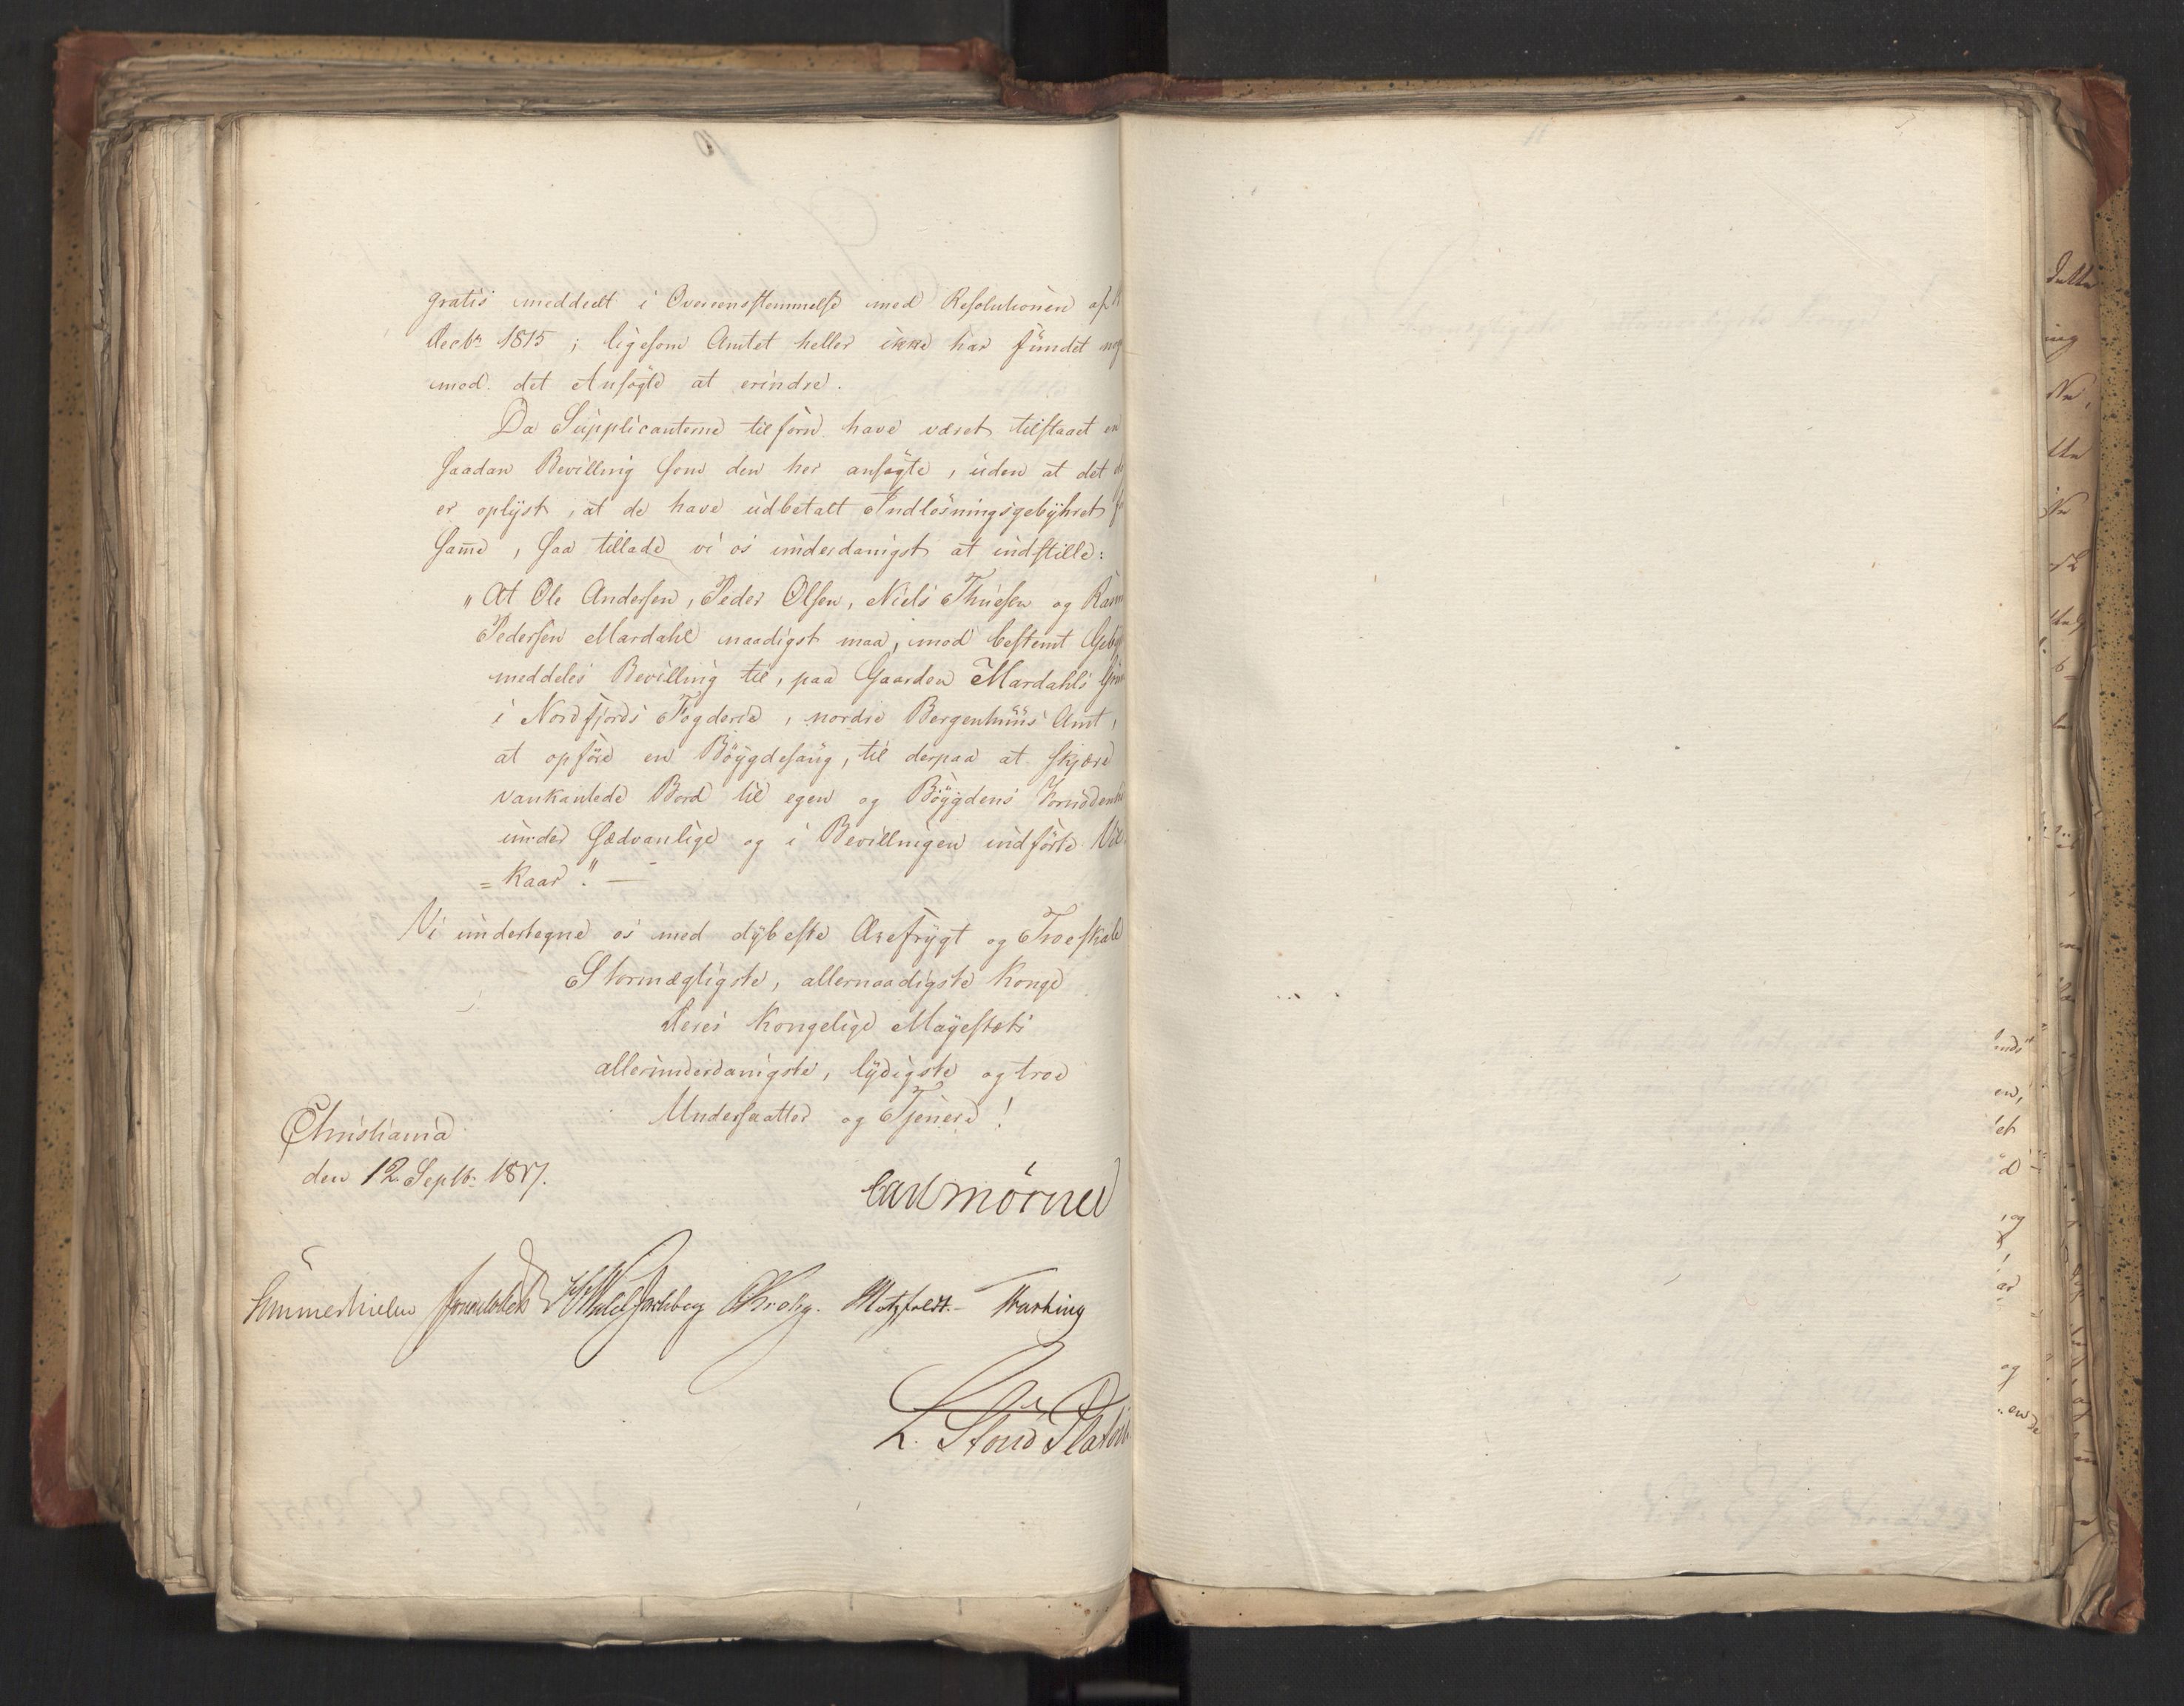 gratis meddeelt i Overeensstemmelse med Resolutionen af
Decbr 1815; ligesom Amtet heller ikke har fundet nog
mod det Ansøgte at erindre.
Da Supplicanterne tilforn have været tilstaaet en
saadan Bevilling som den her ansøgte, uden at det
er oplyst, at de have udbetalt Indløsningsgebyhret
samme, saa tillade vi os underdanigst at indstille:
"At Ole Andersen, Peder Olsen, Niels Thuesen og
Pedersen Mardahl naadigst maa, mod bestemt Geby
meddeles Bevilling til, paa Gaarden Mardahls
i Nordfjords Fogderie, nordre Bergenhuus Amt,
at opføre en Bøygdesaug, til derpaa at skjære
vankantede Bord til egen og Bøygdens Fornødenh
under sædvanlige og i Bevillingen indførte Vil
=kaar." —
Vi undertegne os med dybeste Ærefrygt og Troeskab
Stormægtigste, allernaadigste Konge
Deres Kongelige Mayestæts
allerunderdanigste, lydigste og troe
Undersaatter og Tjenere!
Christiania
den 12. Septbr 1817.
Carl Mörner
Sommerhielm Krohg. Motzfeldt. Thastrup
L. Stoud Platou